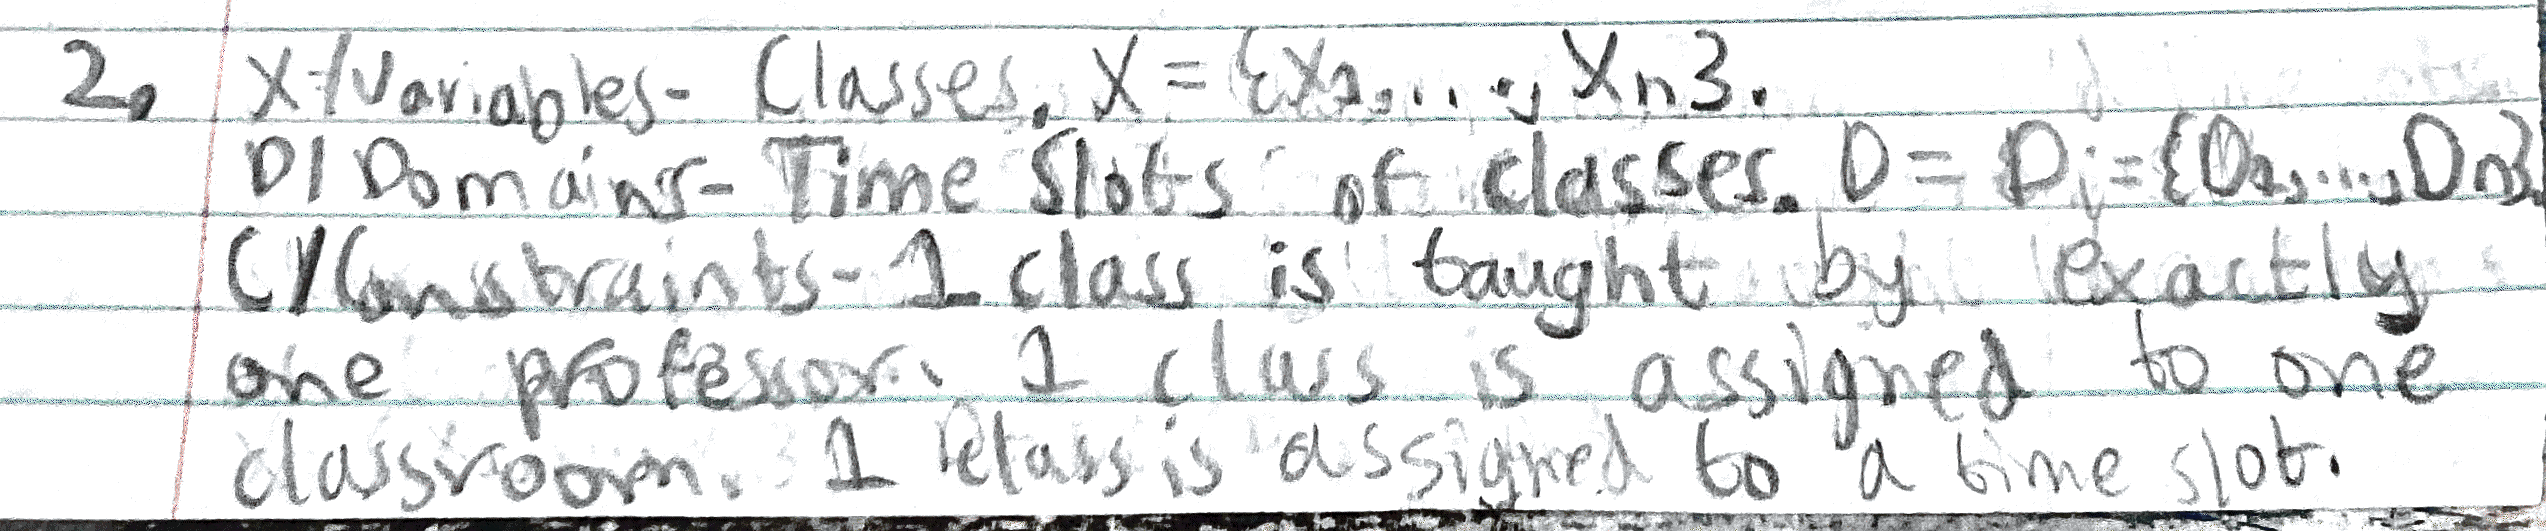 2. X/Variables- Classes. X = {X1,...,Xn}.
D/Domains- Time Slots of classes. D = Di = {D1,...,Dn}.
C/Constraints- 1 class is taught by exactly
one professor. 1 class is assigned to one
classroom. 1 class is assigned to a time slot.